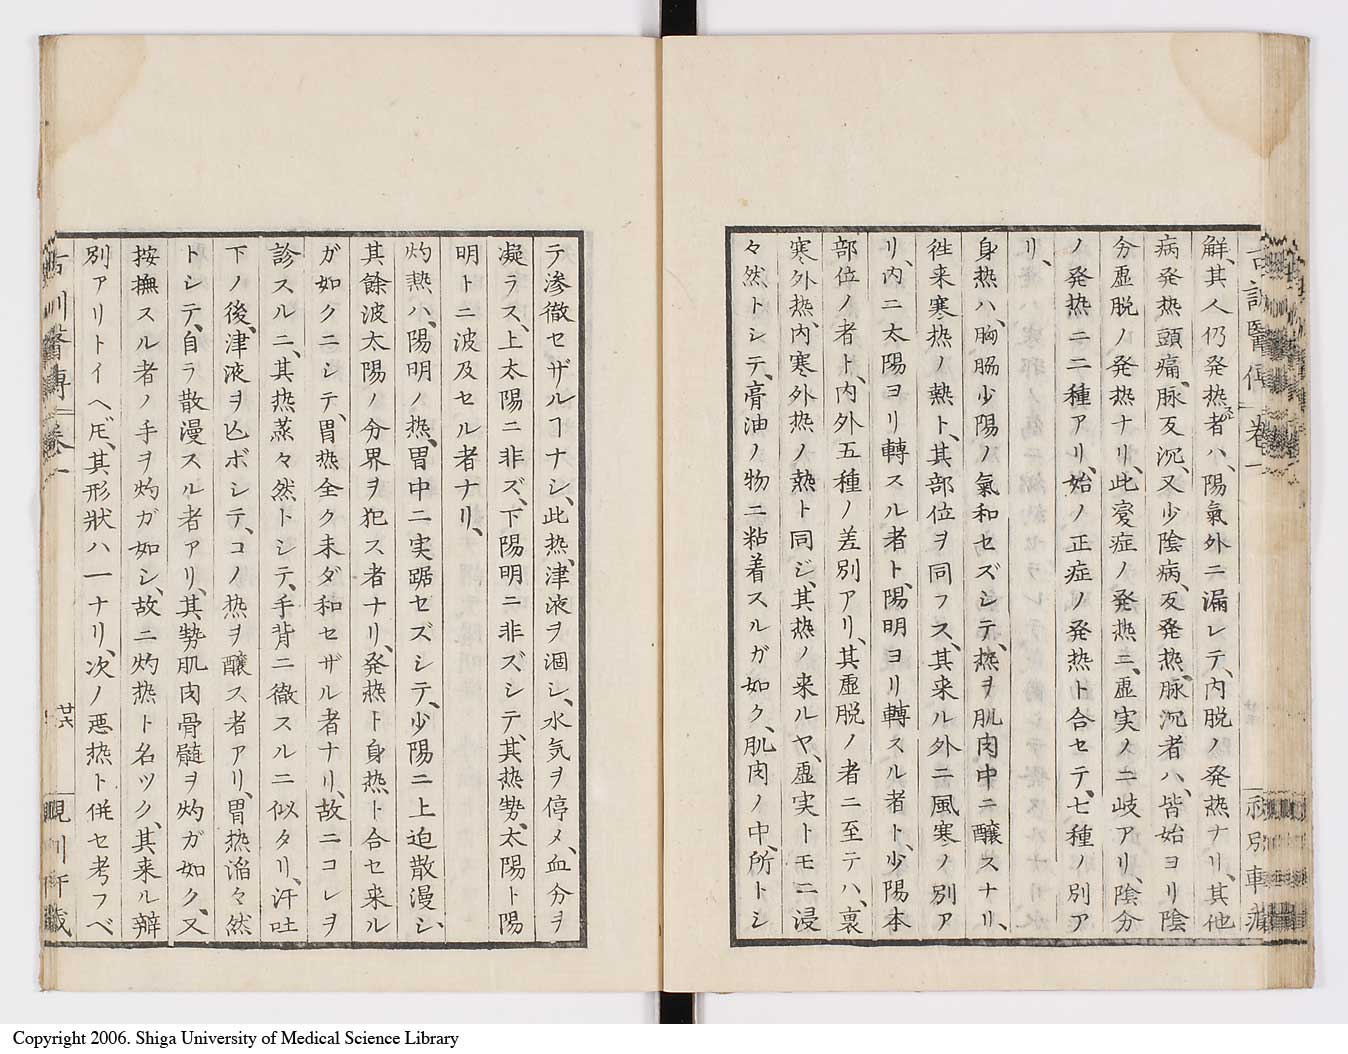 解、其人仍発热者ハ、陽氣外ニ漏レテ、内脱ノ発热ナリ、其他
病発热頭痛、脉反沉、又少陰病、反発热、脉沉者ハ、皆始ヨリ陰
分虚脱ノ発热ナリ、此変症ノ発热ニ、虚実ノ二岐アリ、陰分
ノ発热ニ二種アリ、始ノ正症ノ発热ト合セテ、七種ノ別ア
リ、
身热ハ、胸脇少陽ノ氣和セズシテ、热ヲ肌肉中ニ醸スナリ、
徃来寒热ノ熱ト、其部位ヲ同フス、其来ル外ニ風寒ノ別ア
リ、内ニ太陽ヨリ轉スル者ト、陽明ヨリ轉スル者ト、少陽本
部位ノ者ト、内外五種ノ差別アリ、其虚脱ノ者ニ至テハ、裏
寒外热、内寒外热ノ熱ト同ジ、其热ノ来ルヤ、虚実トモニ浸
々然トシテ、膏油ノ物ニ粘着スルガ如ク、肌肉ノ中、所トシ
テ滲徹セザルヿナシ、此热、津液ヲ涸シ、水気ヲ停メ、血分ヲ
凝ラス、上太陽ニ非ズ、下陽明ニ非ズシテ、其热勢、太陽ト陽
明トニ波及セル者ナリ、
灼熱ハ、陽明ノ热、胃中ニ実踞セズシテ、少陽ニ上迫散漫シ、
其餘波太陽ノ分界ヲ犯ス者ナリ、発热ト身热ト合セ来ル
ガ如クニシテ、胃热全ク未ダ和セザル者ナリ、故ニコレヲ
診スルニ、其热蒸々然トシテ、手背ニ徹スルニ似タリ、汗吐
下ノ後、津液ヲ亾ボシテ、コノ热ヲ醸ス者アリ、胃热滔々然
トシテ、自ラ散漫スル者アリ、其勢肌肉骨髄ヲ灼ガ如ク、又
按撫スル者ノ手ヲ灼ガ如シ、故ニ灼热ト名ツク、其来ル辯
別アリトイヘ𪜈、其形狀ハ一ナリ、次ノ悪热ト併セ考フベ
廿六
Copyright 2006. Shiga University of Medical Science Library